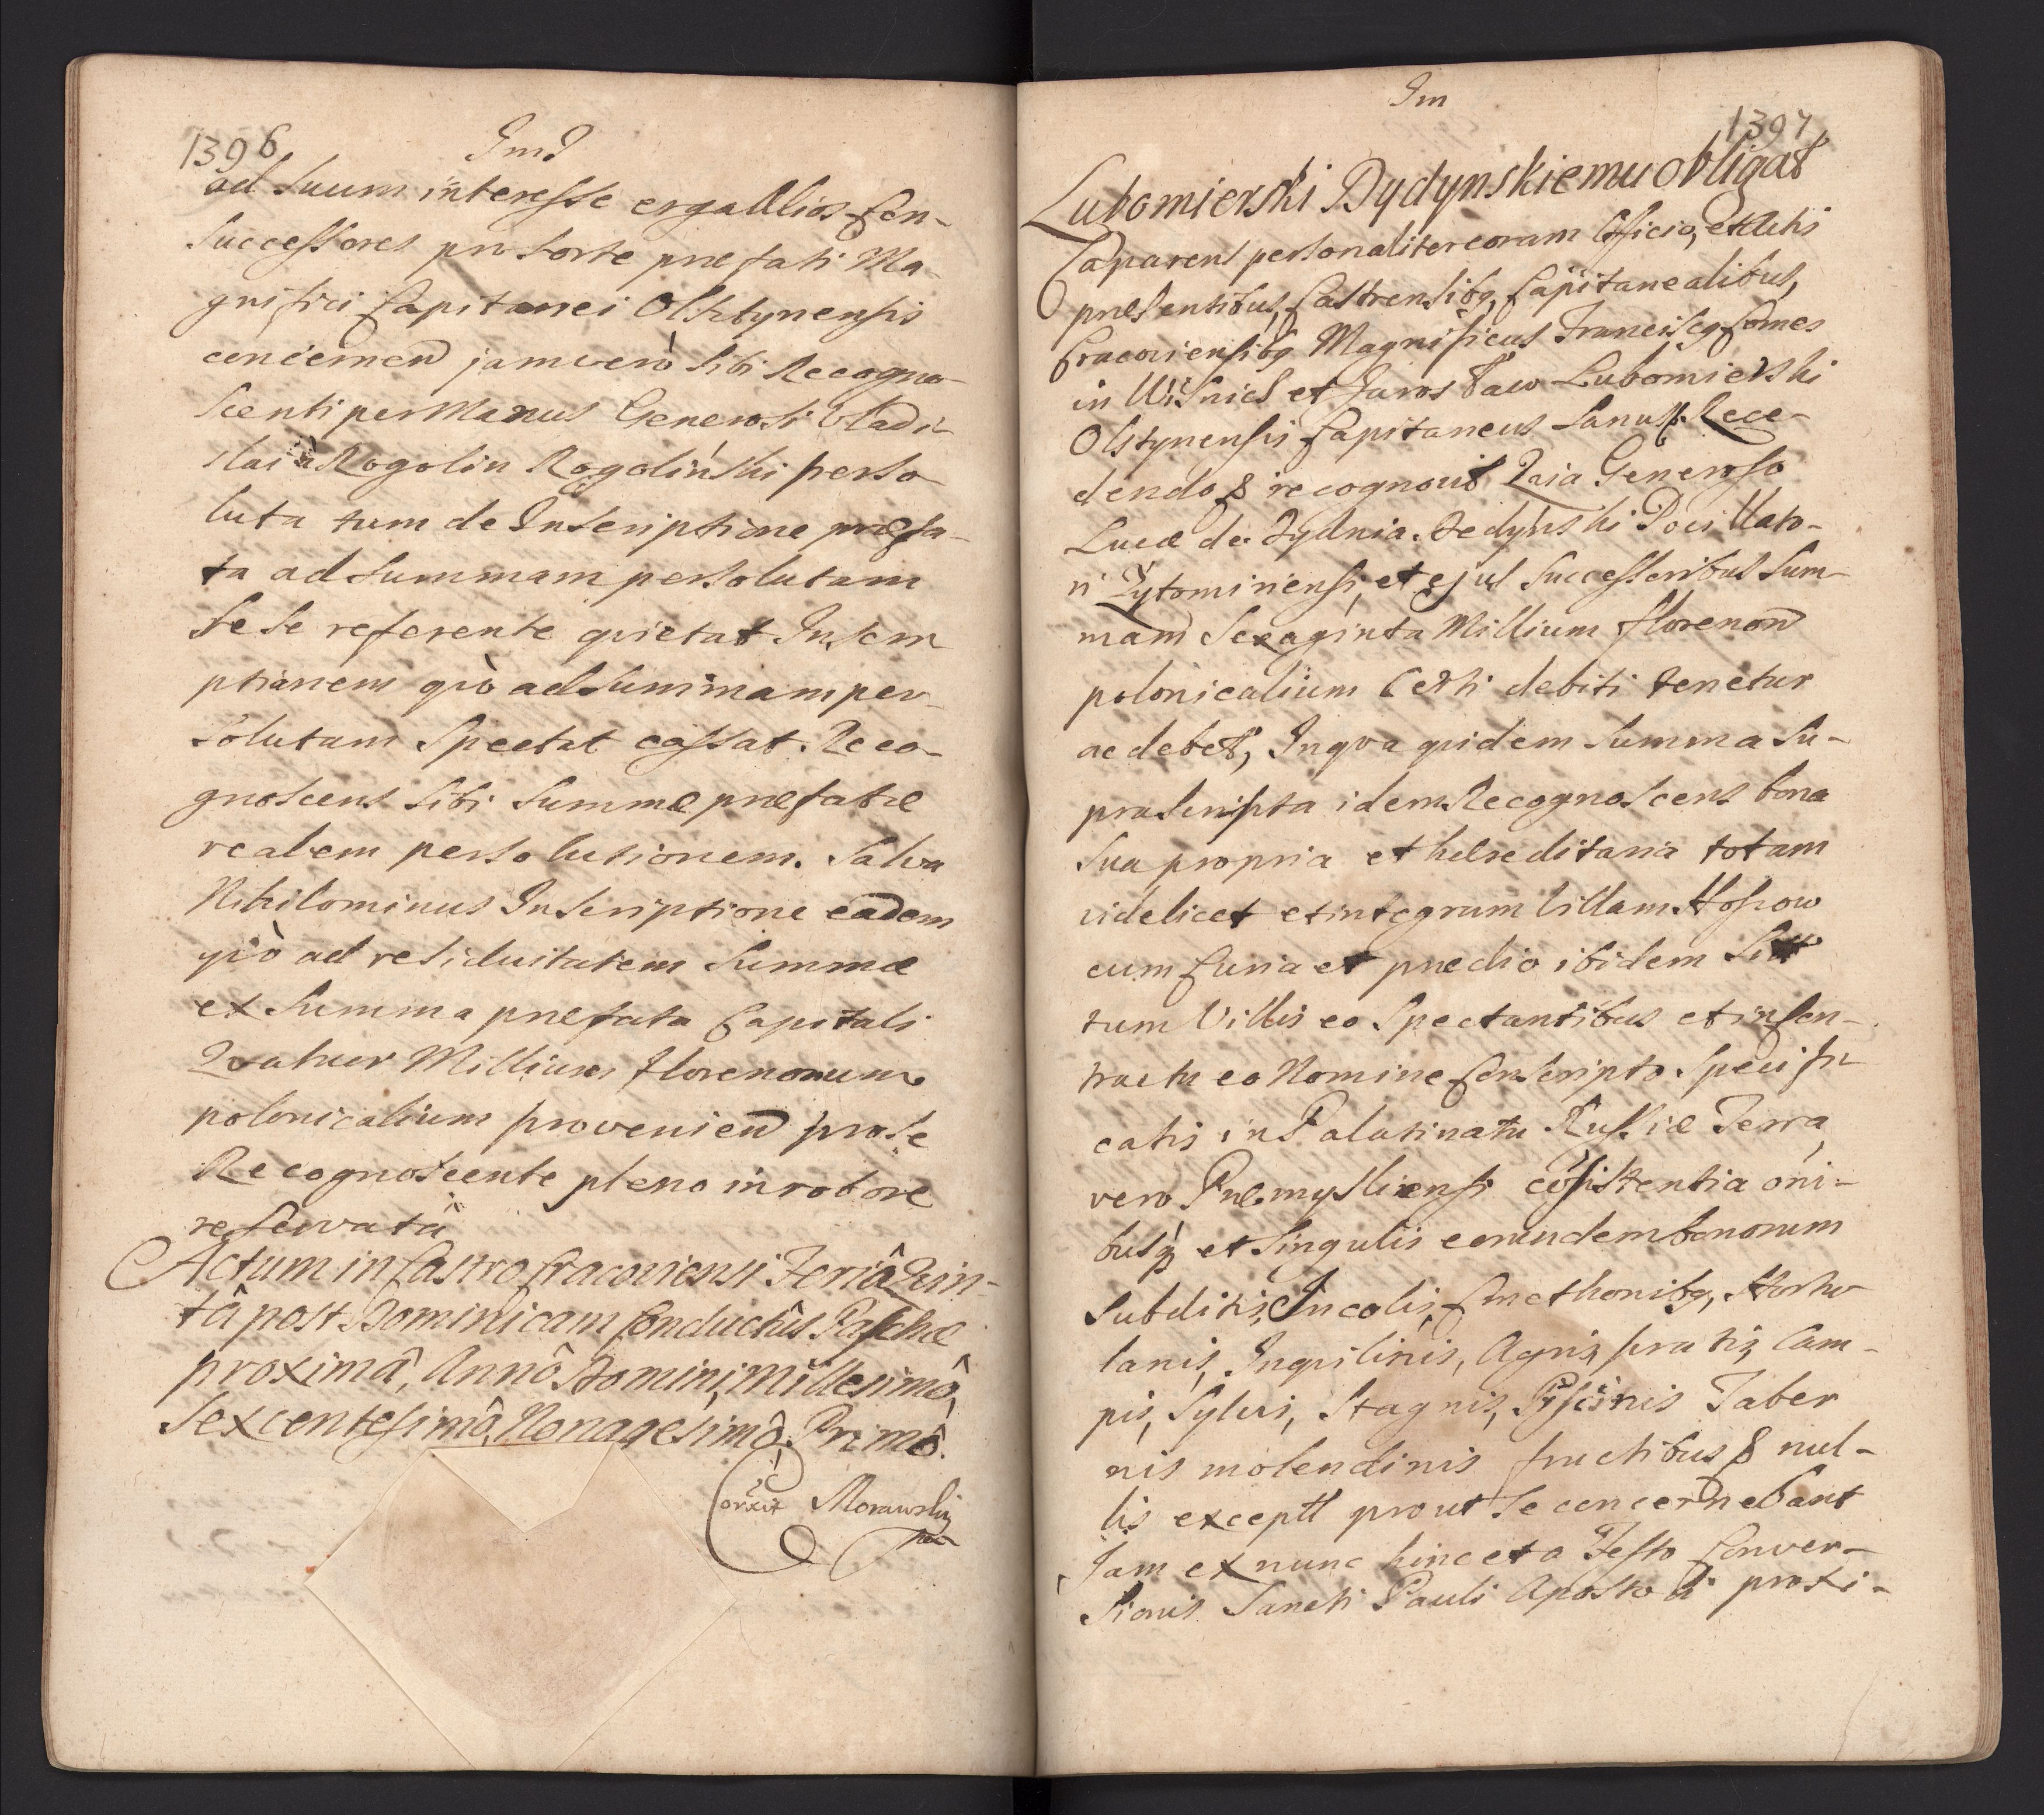 1396
ImP
ad Suum interesse erga Illios Con-
Successores pro Sorte præfati Ma-
gnifici Capitanei Olsztynensis
concernen jam verò Sibi Recogno-
Scenti per Manus Generosi Vladi-
slai à Rogolin Rogoliński perso
luta tum de Inscriptione præfa-
ta ad Summam persolutam
Se Se referente quietat Inscri
ptionem quò ad Summam per-
Solutam Spectat cassat. Reco-
gnoscens Sibi Summæ præfatæ
realem persolutionem. Salva
Nihilominus Inscriptione eadem
quò ad residuitatem Summæ
ex Summa præfata Capitali
Quatuor Millium florenorum
polonicalium provenien pro Se
Recognoscente pleno in robore
reservatâ
Actum in Castro Cracoviensi Feriâ Quin-
tâ post Dominicam Conductûs Paschæ
proximâ, Annô Domini, Millesimô,
Sexcentesimô, Nonagesimô, Primô.
Corxit Morawski
mp
Im
1397
Lubomierski Dydynskiemu obligat
Comparens personaliter coram Officio, et Actis
præsentibus, Castrensibq Capitanealibus,
Cracoviensibq Magnificus Franciscq Comes
in Wisnicz et Jarosław Lubomierski
Olstynensis Capitaneus Sanus. Rece-
dendo & recognovit Quia Generoso
Lucæ de Dydnia Dedynski Pocillato-
ri Zytomiriensi, et ejus Successoribus Sum-
mam Sexaginta Millium florenon
polonicalium Certi debiti tenetur
ac debet, In qva quidem Summa Su-
prascripta idem Recognoscens bona
Sua propria et hæreditaria totam
videlicet et integram Villam Hoszow
cum Curia et prædio ibidem Sitt
tum Villis eo Spectantibus et in Con-
tractu eo Nomine Conscripto Specifi-
catis in Palatinatu Russiæ Terra
vero Præmysliensi cosistentia oni-
busq et Singulis eorundem bonorum
Subditis, Incolis, Cmethonibq, Hortu-
lanis, Inquilinis, Agris, pratis, Cam-
pis, Sylvis, Stagnis, Piscinis Taber
nis molendinis fructibus & nul-
lis exceptt prout Se concernebant
Jam ex nunc hinc et a Festo Conver-
Sionis Sancti Pauli Apostoli proxi-